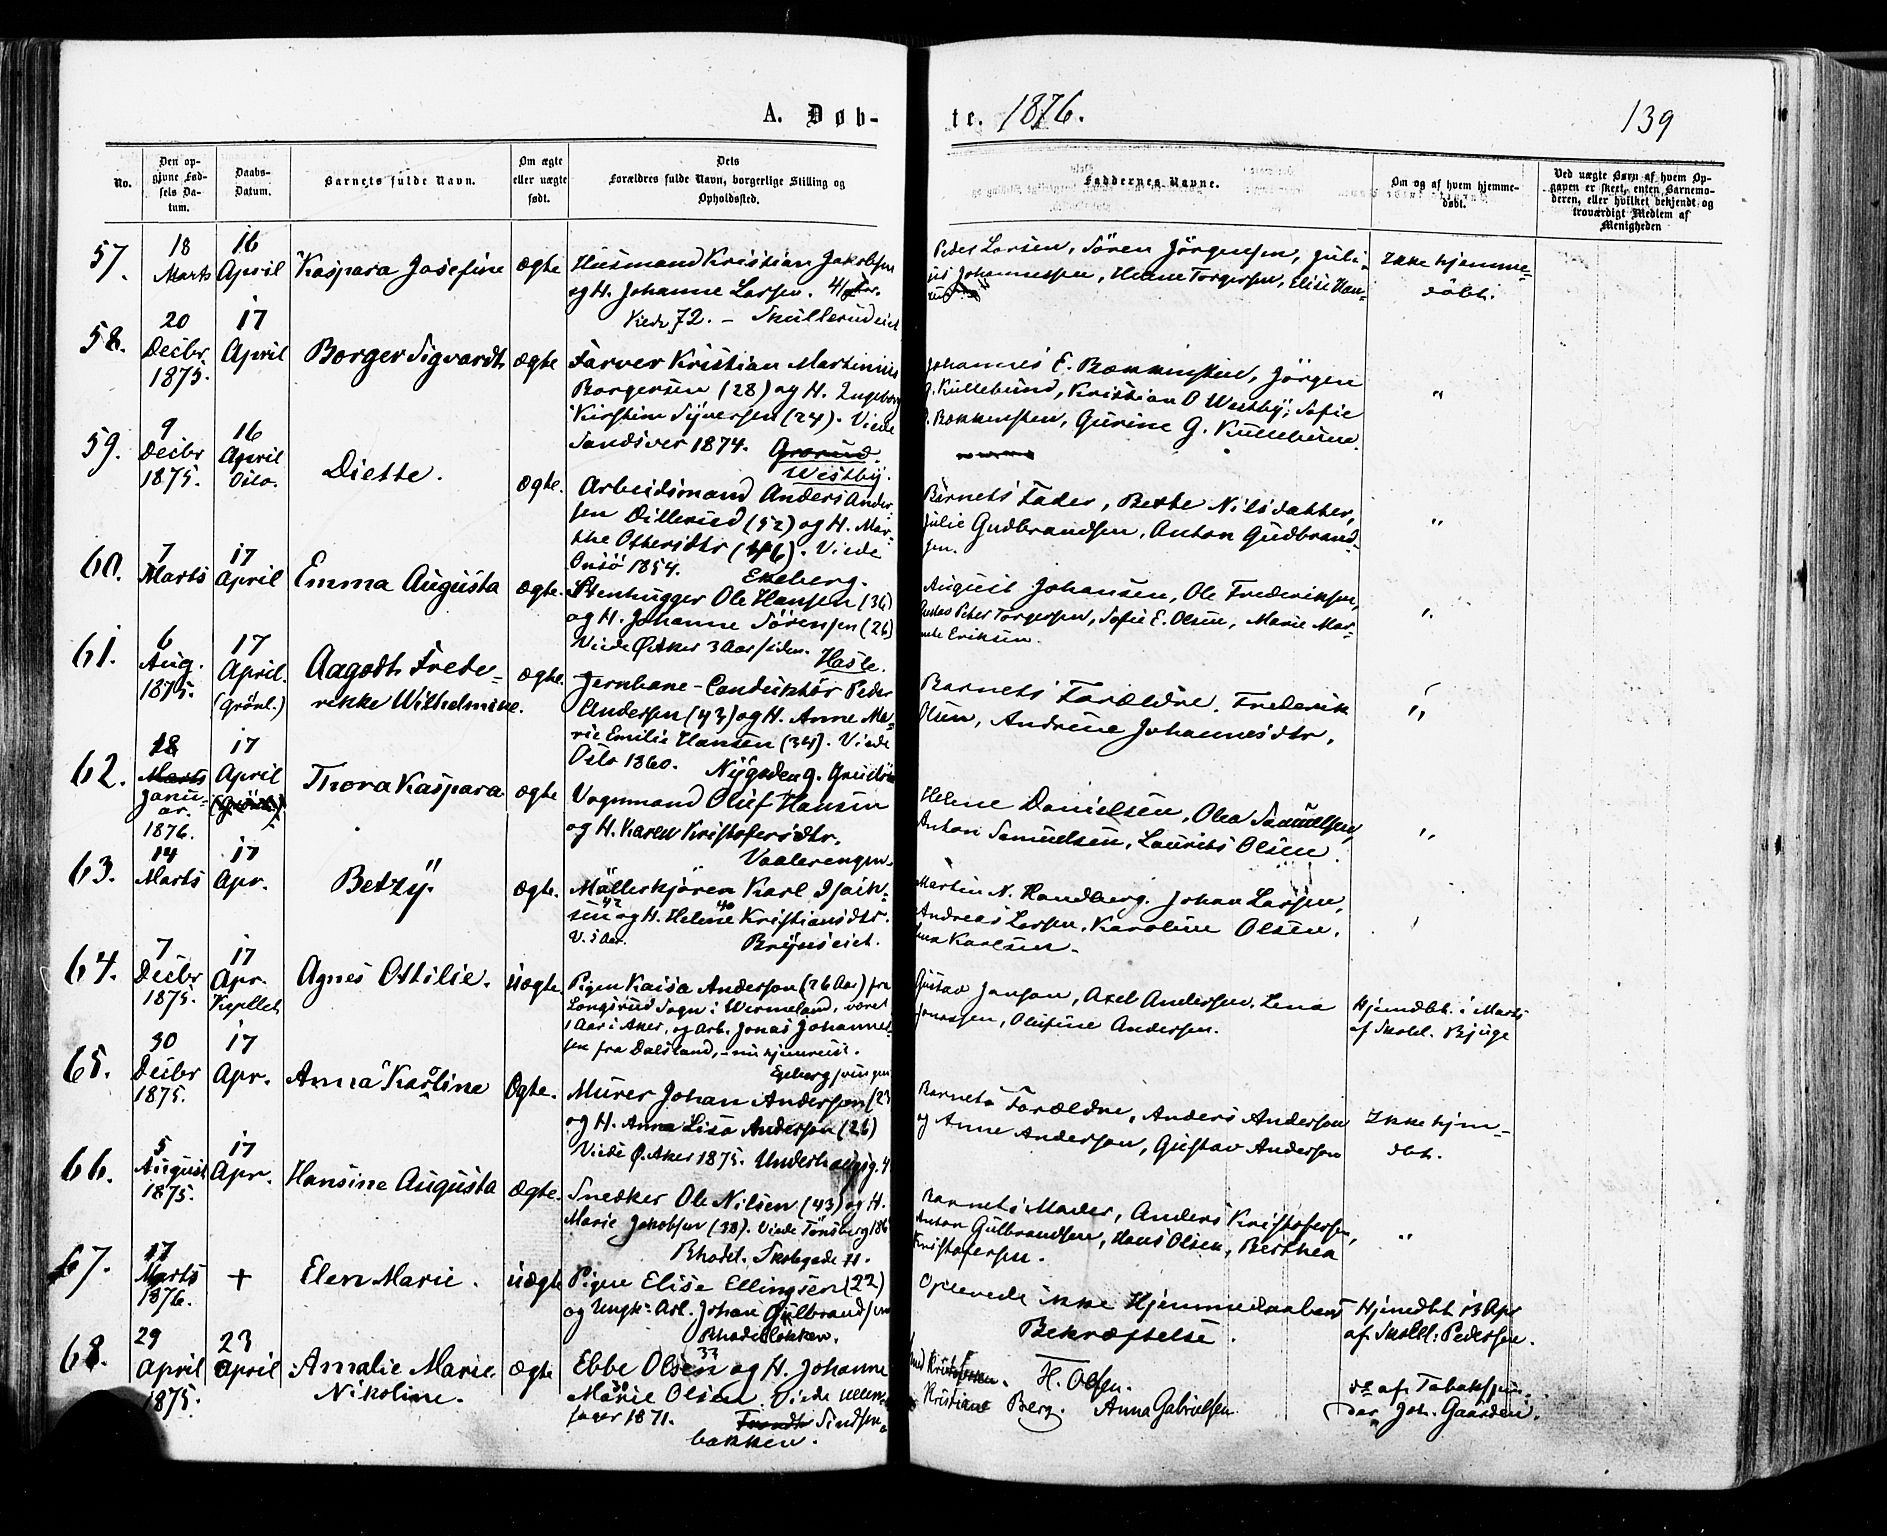 A. Døb-
te. 1876.
139
No.
Den op-
givne Fød-
sels Da-
tum.
Daabs-
Datum.
Barnets fulde Navn.
Om ægte
eller uægte
født.
Dets
Forældres fulde Navn, borgerlige Stilling og
Opholdssted.
Faddernes Navne.
Om og af hvem hjemme-
døbt.
Ved uægte Børn af hvem Op-
gaven er skeet, enten Barnemo-
deren, eller hvilket bekjendt og
troværdigt Medlem af
Menigheden
57.
18
Marts
16
April
Kaspara Josefine
ægte
Husmand Kristian Jakobsen
og H. Johanne Larsen. 41 Aar.
Viede 72. – Skullerudeiet
Peder Larsen, Sören Jörgensen, Juli-
us Johannessen, Helene Torgersen, Elise Han-
Ikke hjemme-
döbt.
58.
20
Decbr.
1875.
17
April
Borger Sigvardt
ægte
Farver Kristian Martinius
Borgersen (28) og H. Ingeborg
Kirstine Syversen (24). Viede
Sandsver 1874. Grorud.
Westby.
Johannes E. Bakkensteen, Jörgen
G. Kullebund, Kristian O Westby, Sofie
Bakkensteen, Gurine G. Kullebund
"
59.
9
Decbr
1875.
16
April
Oslo.
Diette.
ægte.
Arbeidsmand Anders Ander-
sen Dillerud (52) og H. Mar-
the Ottersdtr (46). Viede
Onsö 1854. Ekeberg.
Barnets Fader, Bethe Nilsdatter,
Julie Gudbrandsen, Anton Gudbrand-
sen.
"
60.
7
Marts
17
April
Emma Augusta
ægte.
Stenhugger Ole Hansen (36)
og H. Johanne Sörensen (26)
Viede Ø. Aker 3 Aar siden. Hasle.
August Johansen, Ole Frederiksen,
Gustav Peter Torgersen, Sofie E. Olsen, Marie Mar-
Eriksen.
"
61.
6
Aug.
1875.
17
April.
(Grönl.)
Aagodth Frede-
rikke Wilhelmine.
ægte.
Jernbane-Conduktör Peder
Andersen (43) og H. Anne Ma-
rie Emilie Hansen (34). Viede
Oslo 1860. Nygaden 9.
Barnets Forældre, Frederik
Olsen, Andrine Johannesdtr,
"
62.
18
Marts
Janu-
ar.
1876.
17
April
(Grönl.)
Thora Kaspara
ægte
Vognmand Oluf Hansen
og H. Karen Kristofersdtr.
Vaalerengen.
Helene Danielsen, Olea Samuelsen,
Anton Samuelsen, Laurits Olsen.
"
63.
14
Marts
17
Apr.
Betzy.
ægte.
Möllerkjören Karl Isak-
sen 42 og H. Helene 40 Kristiansdtr.
V. 5 Aar. Brynseiet.
Martin N. Handberg. Johan Larsen,
Andreas Larsen, Karoline Olsen,
Karlsen.
64.
7
Decbr
1875.
17
Apr.
Kapellet
Agnes Ottilie.
uægte
Pigen Kaisa Anderson (26 Aar) fra
Longsrud Sogn i Wermeland, været
1 Aar i Aker, og Arb. Jonas Johannes-
sen fra Dalsland, – nu hjemreist.
Egebergsvingen
Gustav Janson, Axel Andersen, Lena
Jonassen, Olufine Andersen.
Hjemdbt. i Marts
af Skoll. Bjuge
65.
30
Decbr
1875.
17
Apr.
Anna Karoline
Ægte.
Murer Johan Andersson (23
og H. Anna Lisa Anderson (26)
Viede Ø. Aker 1875. Underhaugsg. 4
Barnets Forældre, Anders Anderson
og Anne Anderson, Gustav Anderson
Ikke hjm-
dbt.
66.
5
August
1875.
17
Apr.
Hansine Augusta
Ægte.
Snedker Ole Nilsen (43) og H.
Marie Jakobsen (38). Viede Tönsberg 186
Rhodel. Skolegade 11.
Barnets Moder, Anders Kristofersen,
Anton Gulbrandsen, Hans Olsen, Berthea
Kristofersen.
"
67.
17
Marts
1876.
+
Elen Marie.
uægte
Pigen Elise Ellingsen (22)
og Ungk. Arb. Johan Gulbrandsen
Rhodelökken.
Oplevede ikke Hjemmedaabens
Bekræftelse.
Hjmdbt 13 Apr
af Skoll. Pedersen.
68.
29
April
1875.
23
April
Amalie Marie
Nikoline.
ægte
Ebbe Olsen 33 og H. Johanne
Marie 30 Olsen Viede Ullen-
sager 1871. Sindsen-
bakken.
H. Olsen.
Kristiane Berg. Anna Gabrielsen
do af Tabakspin-
der Joh. Gaarden.